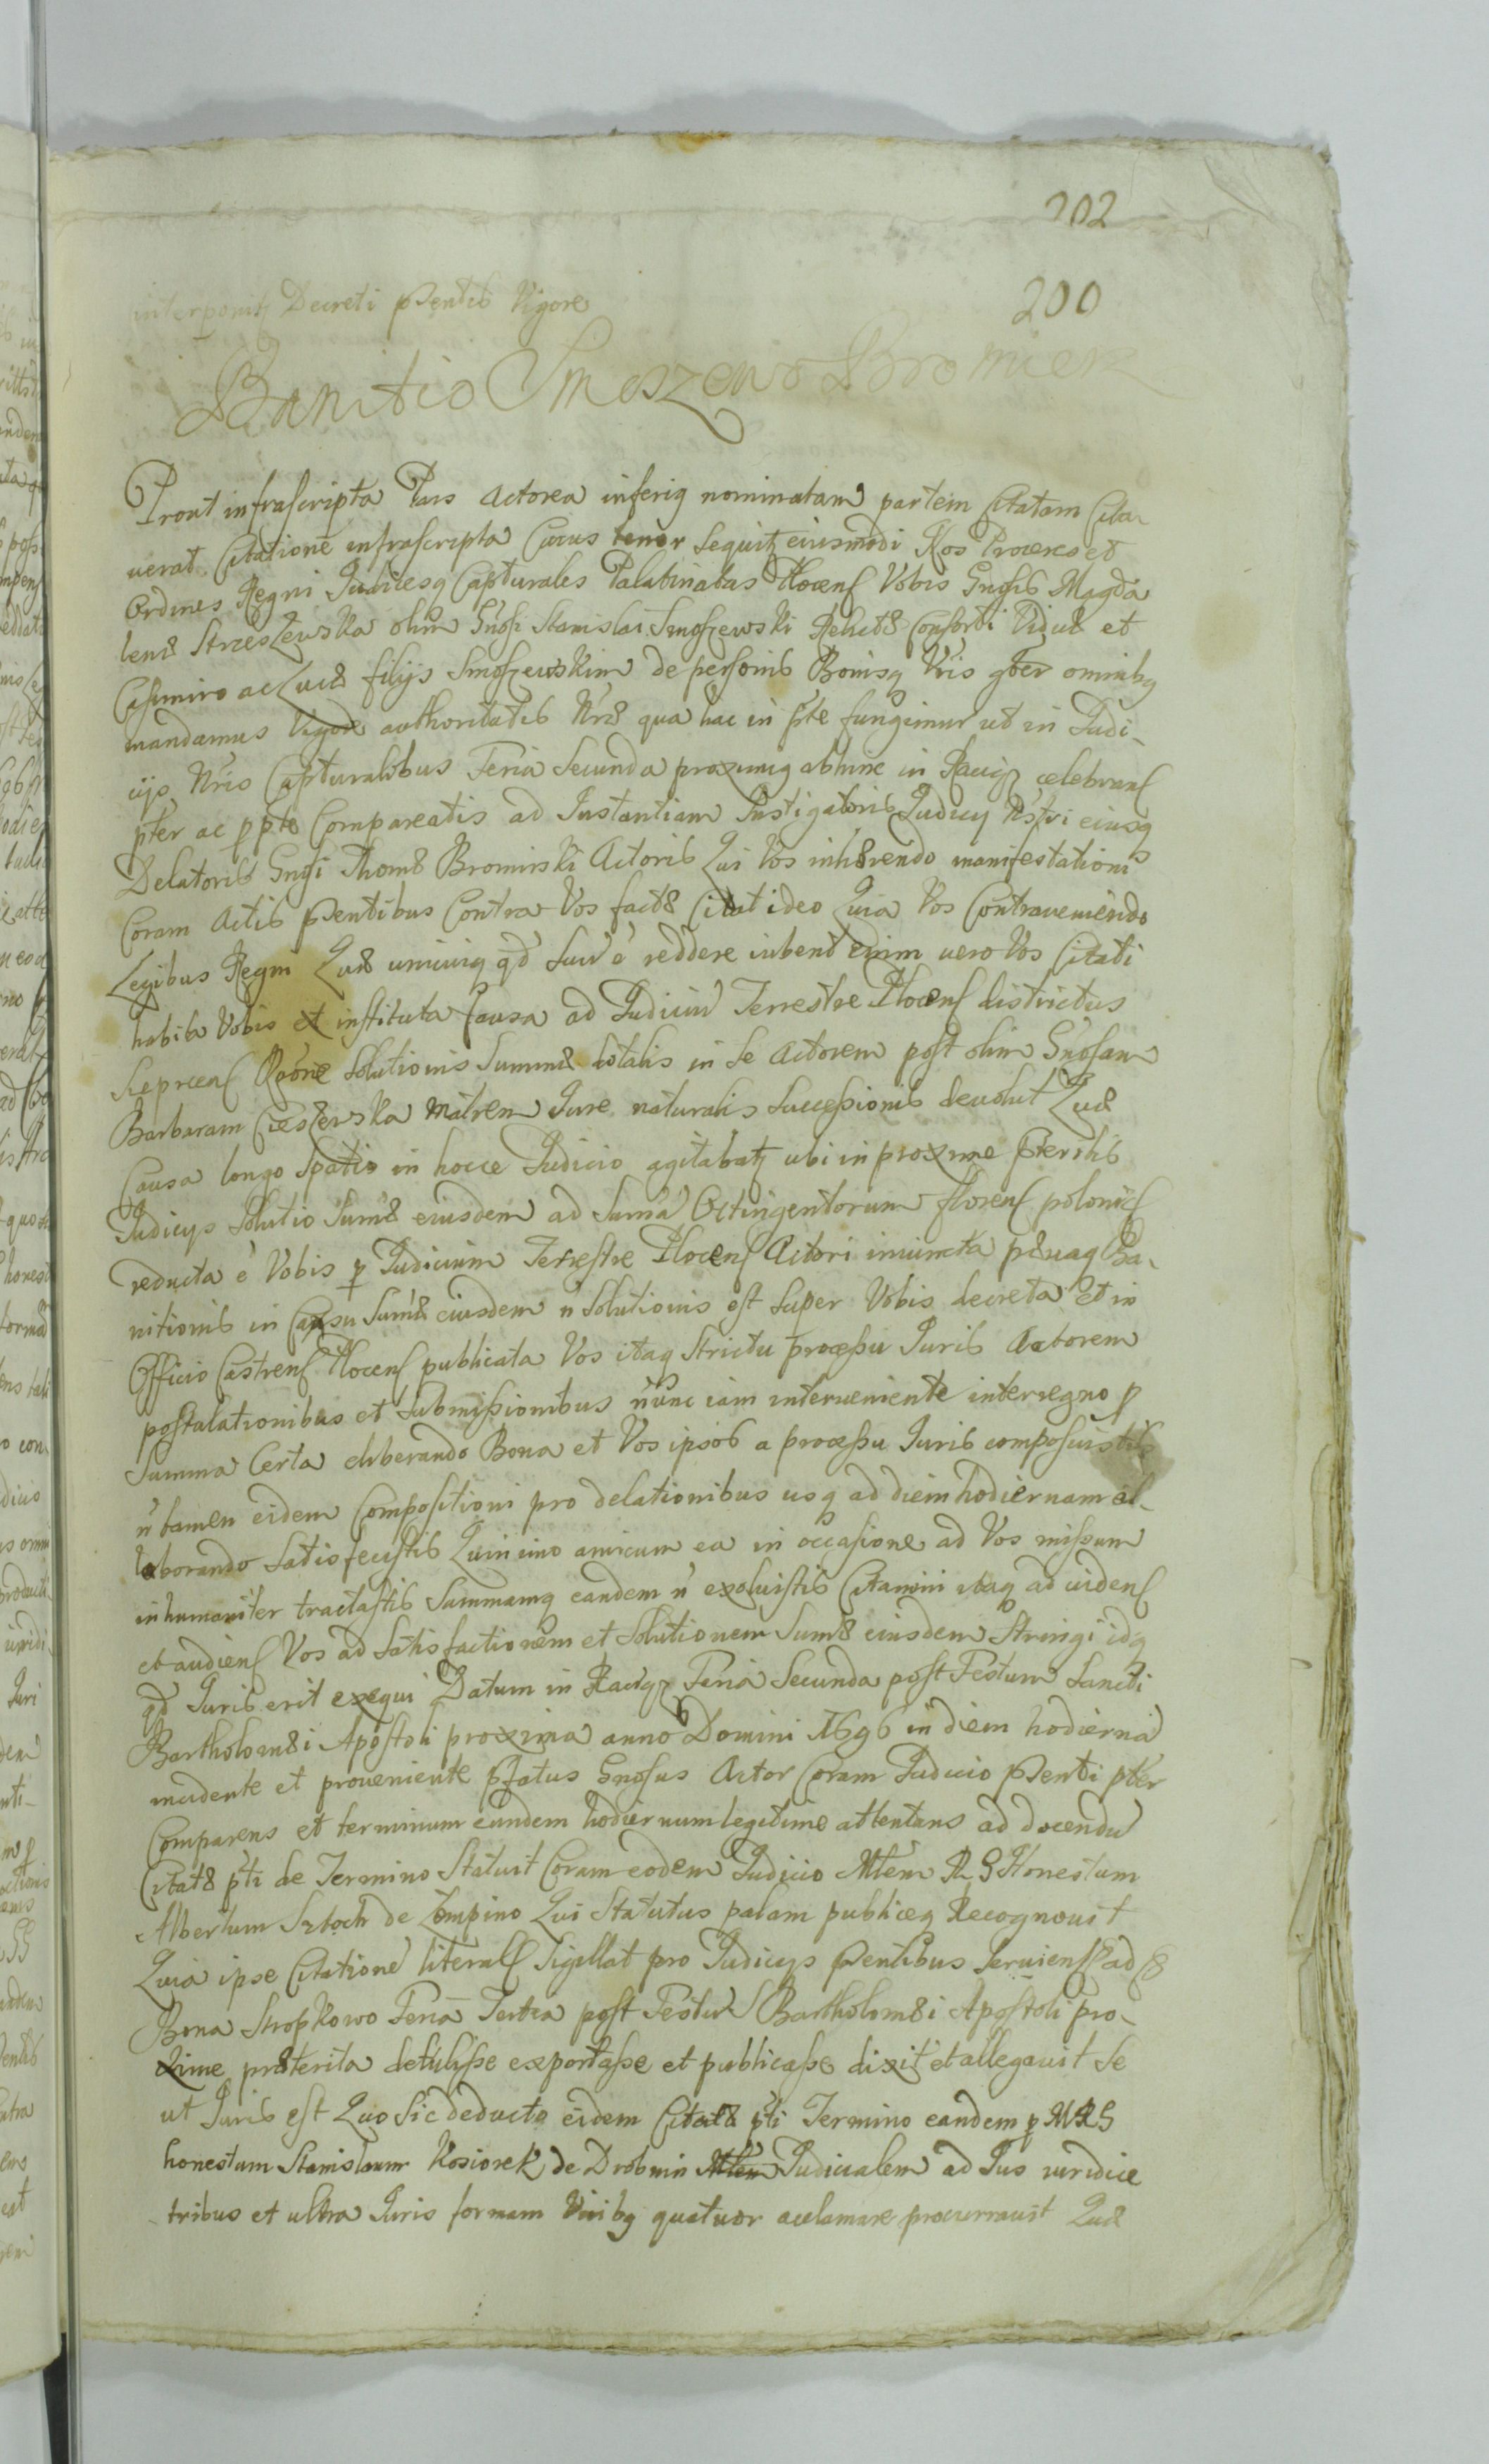 202
interponitz Decreti pntis Vigore
200
Banitio Smoszewo Bromier
Prout infrascripta Pars Actorea inferiq nominatam partem Citatam Cita-
uerat Citatione infrascripta Cuius tenor Sequitz eiusmodi Nos Proceres et
Ordines Regni Iudicesq Capturales Palatinatus Plocens Vobis Gnosis Magda
lenæ Strzeszewska olim Gnosi Stanislai Smoszewski Relictæ Consorti Viduæ et
Casimiro ac Lucæ filijs Smoszewskim de personis Bonisq Vris gter omnibq
mandamus Vigore authoritatis Nræ qua hac in pte fungimur ut in Iudi-
cijs Nris Capturalibus Feria Secunda proximiq abhinc in Raciąz celebrans
pter ac p pte Compareatis ad Instantiam Instigatoris Iudicy Nostri eiusq
Delatoris Gnosi Thomæ Bromirski Actoris Qui Vos inhærendo manifestationi
Coram Actis pntibus Contra Vos factæ Citat ideo Quia Vos Contraueniendo
Legibus Regni Quæ unicuiq qd Suū ē reddere iubent enim uero Vos Citati
habita Vobis et instituta Causa ad Iudiciū Terrestre Plocens districtus
Sieprcens Raōne Solutionis Summæ dotalis in Se Actorem post olim Gnosam
Barbaram Cieszewska Matrem Iure naturalis Successionis deuolut Quæ
Causa longo Spatio in hocce Iudicio agitabatz ubi in proxime pteritis
Iudicys Solutio Sumæ eiusdem ad Sumā Octingentorum florens polonics
reducta ē Vobis p Iudicium Terrestre Plocens Actori iniuncta pænaq Ba-
nitionis in Casu Sumæ eiusdem n Solutionis est Super Vobis decreta Et in
Officio Castrens Plocens publicata Vos itaq Strictu processu Iuris Actorem
postulationibus et Submissionibus nunc iam interueniente interregno p
Summa Certa eliberando Bona et Vos ipsos a processu Iuris composuistis
n tamen eidem Compositioni pro delationibus usq ad diem hodiernam el-
laborando Satisfecistis Quin imo amicum ea in occasione ad Vos missum
inhumaniter tractastis Summamq eandem n exoluistis Citamini itaq ad uidens
et audiens Vos ad Satisfactionem et Solutionem Sumæ eiusdem Stringi idq
qd Iuris erit exequi Datum in Raciąz Feria Secunda post Festum Sancti
Bartholomæi Apostoli proxima anno Domini 1696 in diem hodiernā
incidente et proueniente pfatus Gnosus Actor Coram Iudicio pnti pter
Comparens et terminum eundem hodiernum legitime attentans ad docendū
Citatæ pti de Termino Statuit Coram eodem Iudicio Mtem R G Honestum
Albertum Sztoch de Lempino Qui Statutus palam publiceq Recognouit
Quia ipse Citatione literals Sigillat pro Iudicys pntibus Seruiens ad
Bona Stropkowo Feria Tertia post Festū S Bartholomæi Apostoli pro-
xime præterita detulisse exportasse et publicasse dixit et allegauit Se
ut Iuris est Quo Sic deducto eidem Citatæ pti Termino eandem p MRG
honestum Stanislaum Kosiorek de Drobnin Mtem Iudicialem ad Ius iuridice
tribus et ultra Iuris formam Vicibq quatuor acclamare procurrauit Quæ